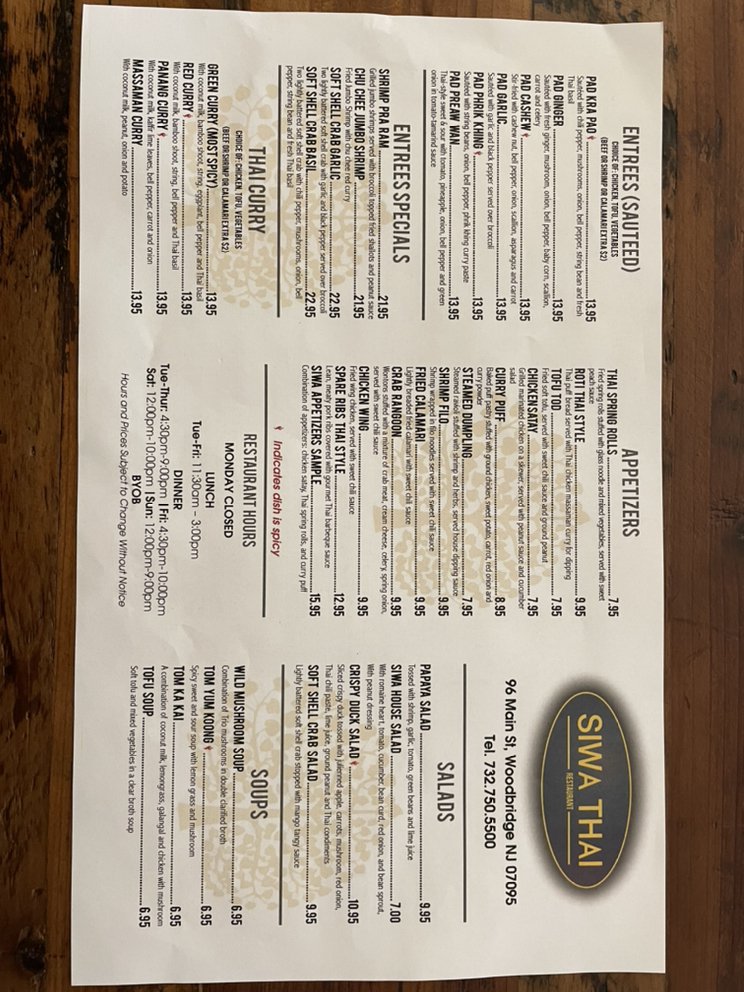 ENTREES (SAUTEED)
CHOICE OF: CHICKEN, TOFU, VEGETABLES
(BEEF OR SHRIMP OR CALAMARI EXTRA $2)
PAD KRA PAO 13.95
Sautéed with chili pepper, mushrooms, onion, bell pepper, string bean and fresh
Thai basil
PAD GINGER 13.95
Sautéed with fresh ginger, mushroom, onion, bell pepper, baby corn, scallion,
carrot and celery
PAD CASHEW 13.95
Stir-fried with cashew nut, bell pepper, onion, scallion, asparagus and carrot
PAD GARLIC 13.95
Sautéed with garlic and black pepper served over broccoli
PAD PHRIK KHING 13.95
Sautéed with string beans, onion, bell pepper, phrik khing curry paste
PAD PREAW WAN 13.95
Thai-style sweet & sour with tomato, pineapple, onion, bell pepper and green
onion in tomato-tamarind sauce
ENTREES SPECIALS
SHRIMP PRA RAM 21.95
Grilled jumbo shrimps served with broccoli topped fried shallots and peanut sauce
CHU CHEE JUMBO SHRIMP 21.95
Fried Jumbo Shrimp with chu chee red curry
SOFT SHELL CRAB GARLIC 22.95
Two lightly battered soft shell crab with garlic and black pepper served over broccoli
SOFT SHELL CRAB BASIL 22.95
Two lightly battered soft shell crab with chili pepper, mushrooms, onion, bell
pepper, string bean and fresh Thai basil
THAI CURRY
CHOICE OF: CHICKEN, TOFU, VEGETABLES
(BEEF OR SHRIMP OR CALAMARI EXTRA $2)
GREEN CURRY (MOST SPICY) 13.95
With coconut milk, bamboo shoot, string, eggplant, bell pepper and Thai basil
RED CURRY 13.95
With coconut milk, bamboo shoot, string, bell pepper and Thai basil
PANANG CURRY 13.95
With coconut milk, kaffir lime leaves, bell pepper, carrot and onion
MASSAMAN CURRY 13.95
With coconut milk, peanut, onion and potato
APPETIZERS
THAI SPRING ROLLS 7.95
Fried spring rolls stuffed with glass noodle and mixed vegetables, served with sweet
peach sauce
ROTI THAI STYLE 9.95
Thai puff bread served with Thai chicken massaman curry for dipping
TOFU TOD 7.95
Fried soft tofu, served with sweet chili sauce and ground peanut
CHICKEN SATAY 7.95
Grilled marinated chicken on a skewer, served with peanut sauce and cucumber
salad
CURRY PUFF 8.95
Baked puff pastry stuffed with ground chicken, sweet potato, carrot, red onion and
curry powder
STEAMED DUMPLING 7.95
Steamed ravioli stuffed with shrimp and herbs, served house dipping sauce
SHRIMP FILO 9.95
Shrimp wrapped in filo noodles served with sweet chili sauce
FRIED CALAMARI 9.95
Lightly breaded fried calamari with sweet chili sauce
CRAB RANGOON 9.95
Wontons stuffed with a mixture of crab meat, cream cheese, celery, spring onion,
served with sweet chili sauce
CHICKEN WING 9.95
Fried wing chicken, served with sweet chili sauce
SPARE RIBS THAI STYLE 12.95
Lean, meaty pork ribs covered with gourmet Thai barbeque sauce
SIWA APPETIZERS SAMPLE 15.95
Combination of appetizers: chicken satay, Thai spring rolls, and curry puff
Indicates dish is spicy
RESTAURANT HOURS
MONDAY CLOSED
LUNCH
Tue-Fri: 11:30am - 3:00pm
DINNER
Tue-Thur: 4:30pm-9:00pm | Fri: 4:30pm-10:00pm
Sat: 12:00pm-10:00pm | Sun: 12:00pm-9:00pm
BYOB
Hours and Prices Subject to Change Without Notice
SIWA THAI
RESTAURANT
96 Main St, Woodbridge NJ 07095
Tel. 732.750.5500
SALADS
PAPAYA SALAD 9.95
Tossed with shrimp, garlic, tomato, green beans and lime juice
SIWA HOUSE SALAD 7.00
With romaine heart, tomato, cucumber, bean curd, red onion, and bean sprout,
With peanut dressing
CRISPY DUCK SALAD 10.95
Sliced crispy duck tossed with julienned apple, carrots, mushroom, red onion,
Thai chili paste, lime juice, ground peanut and Thai condiments
SOFT SHELL CRAB SALAD 9.95
Lightly battered soft shell crab stopped with mango tangy sauce
SOUPS
WILD MUSHROOM SOUP 6.95
Combination of Trio mushrooms in double clarified broth
TOM YUM KOONG 6.95
Spicy sweet and sour soup with lemon grass and mushroom
TOM KA KAI 6.95
A combination of coconut milk, lemongrass, galangal and chicken with mushroom
TOFU SOUP 6.95
Soft tofu and mixed vegetables in a clear broth soup